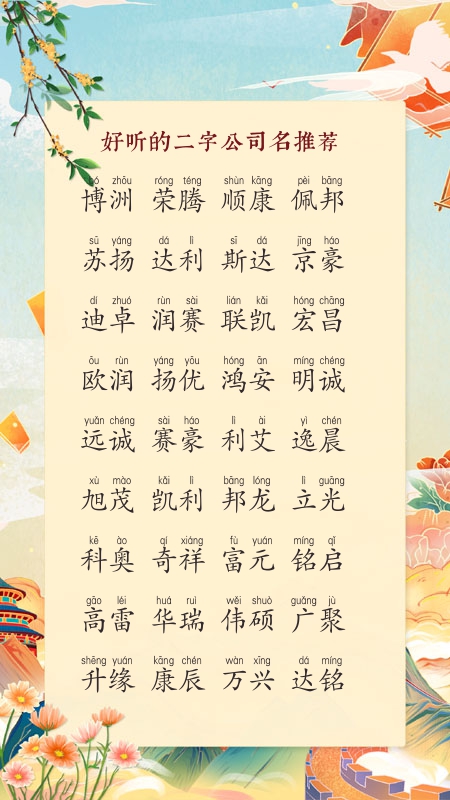 好听的二字公司名推荐
bó zhōu róng téng shùn kāng pèi bāng
博洲 荣腾 顺康 佩邦
sū yáng dá lì sī dá jīng háo
苏扬 达利 斯达 京豪
dí zhuó rùn sài lián kǎi hóng chāng
迪卓 润赛 联凯 宏昌
ōu rùn yáng yōu hóng ān míng chéng
欧润 扬优 鸿安 明诚
yuǎn chéng sài háo lì ài yì chén
远诚 赛豪 利艾 逸晨
xù mào kǎi lì bāng lóng lì guāng
旭茂 凯利 邦龙 立光
kē ào qí xiáng fù yuán míng qǐ
科奥 奇祥 富元 铭启
gāo léi huá ruì wěi shuò guǎng jù
高雷 华瑞 伟硕 广聚
shēng yuán kāng chén wàn xīng dá míng
升缘 康辰 万兴 达铭